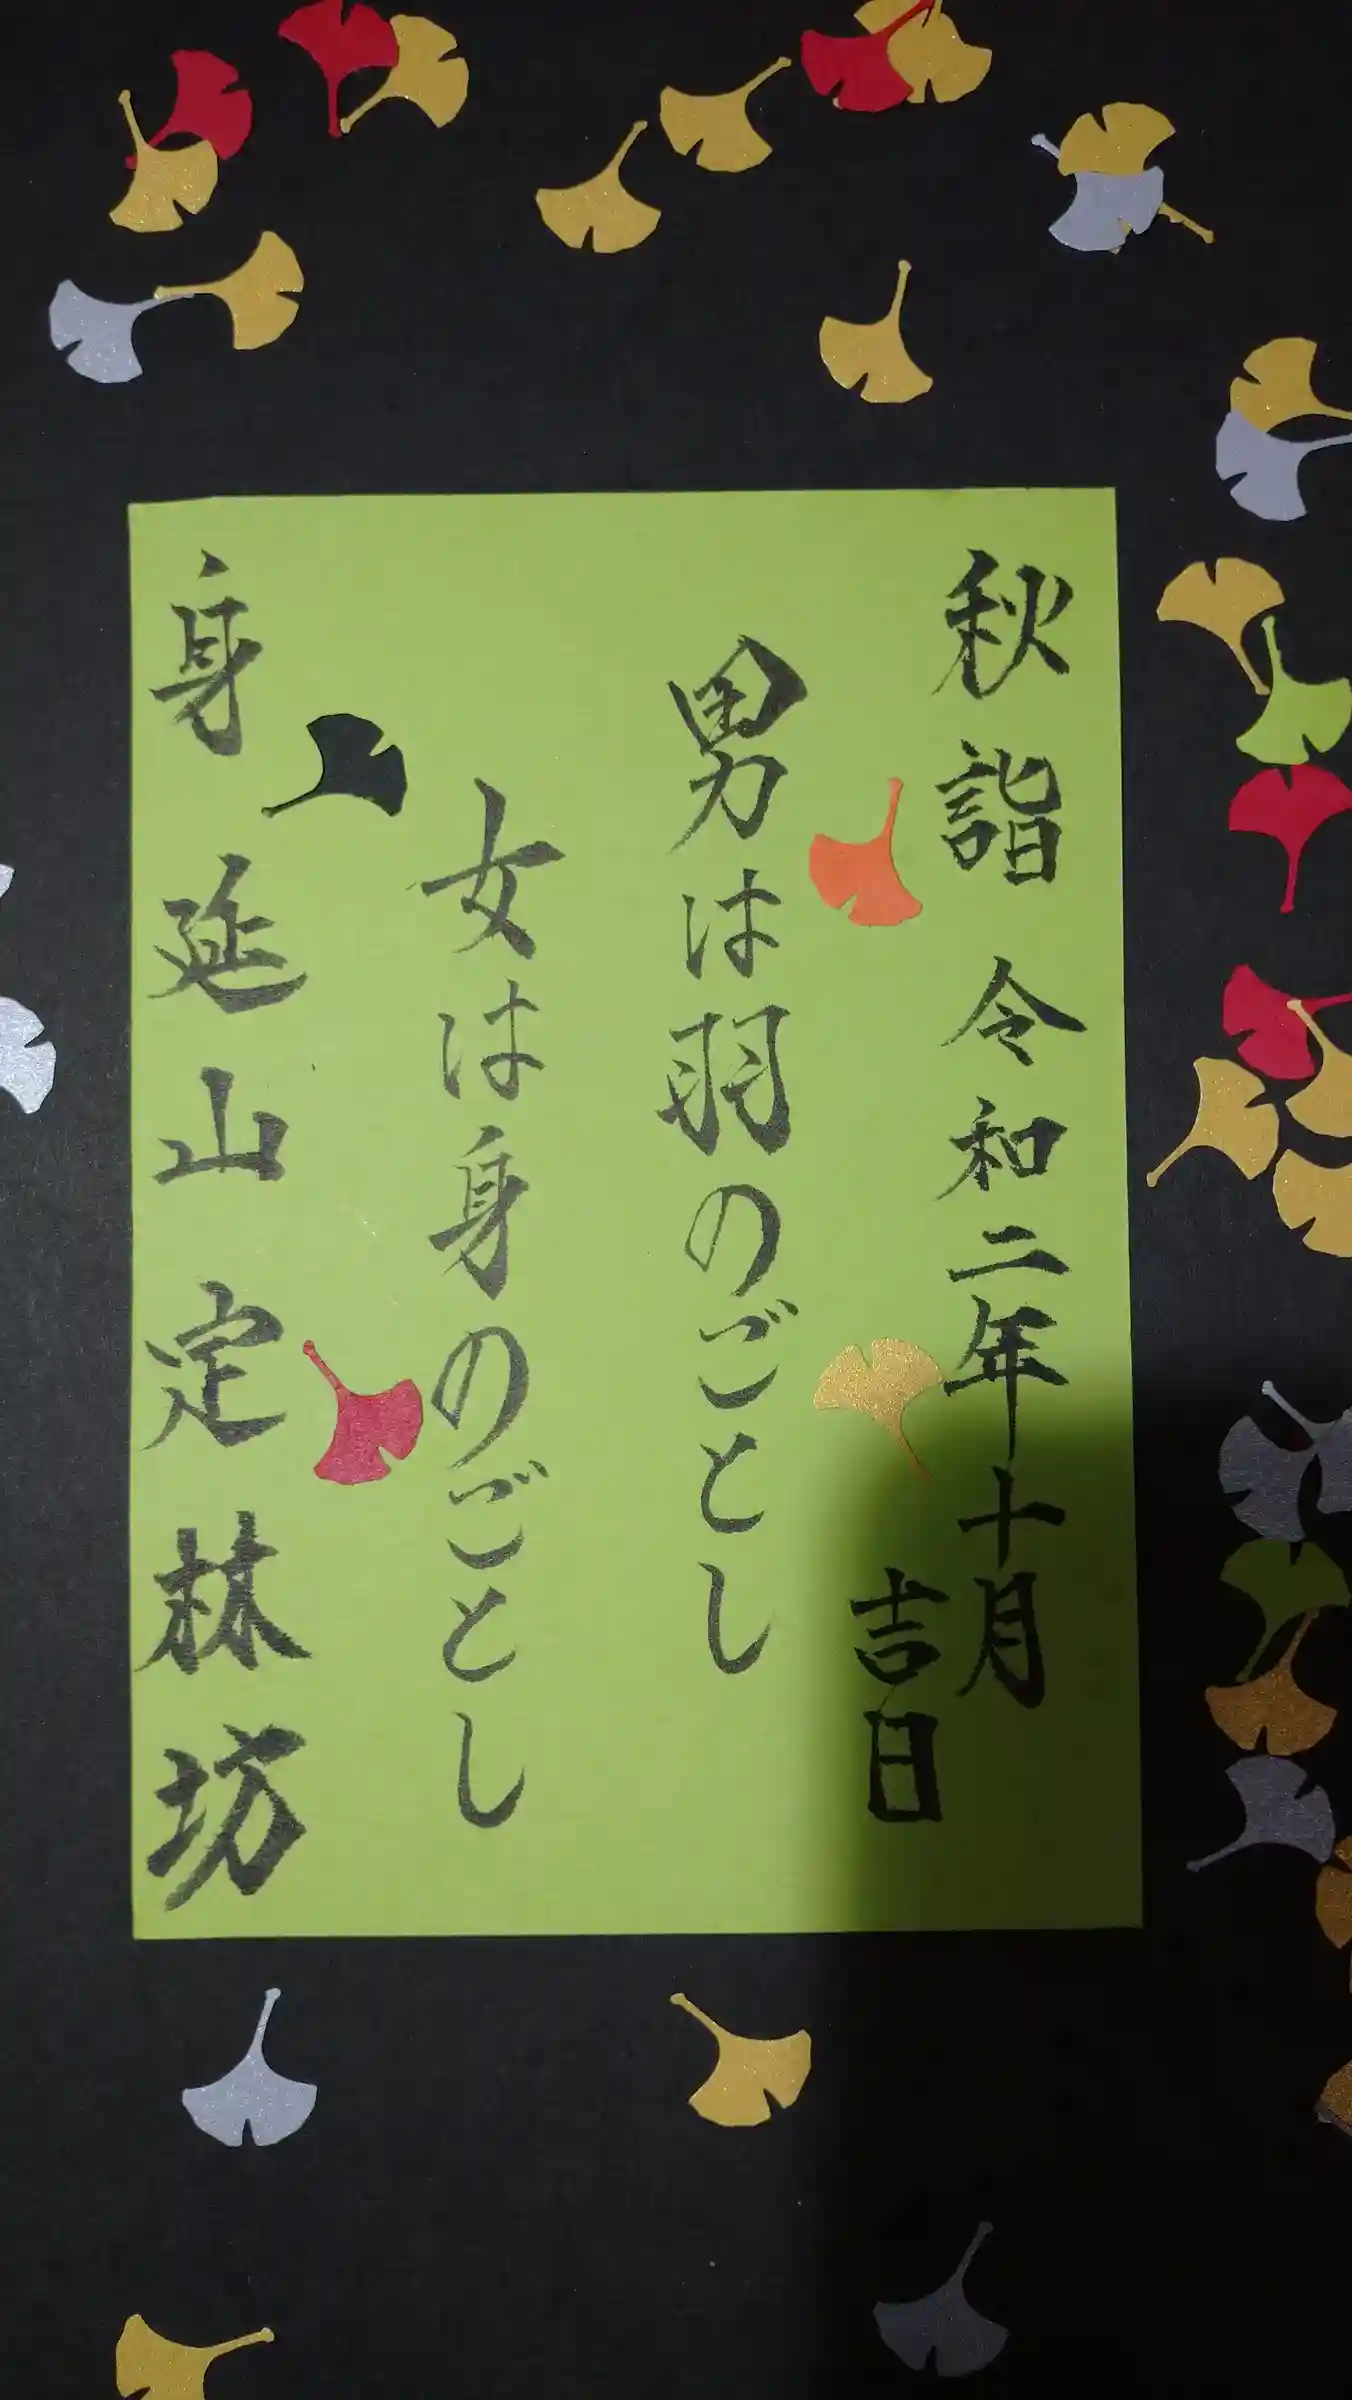 秋詣 令和二年十月
吉日
男は羽のごとし
女は身のごとし
身延山 定林坊